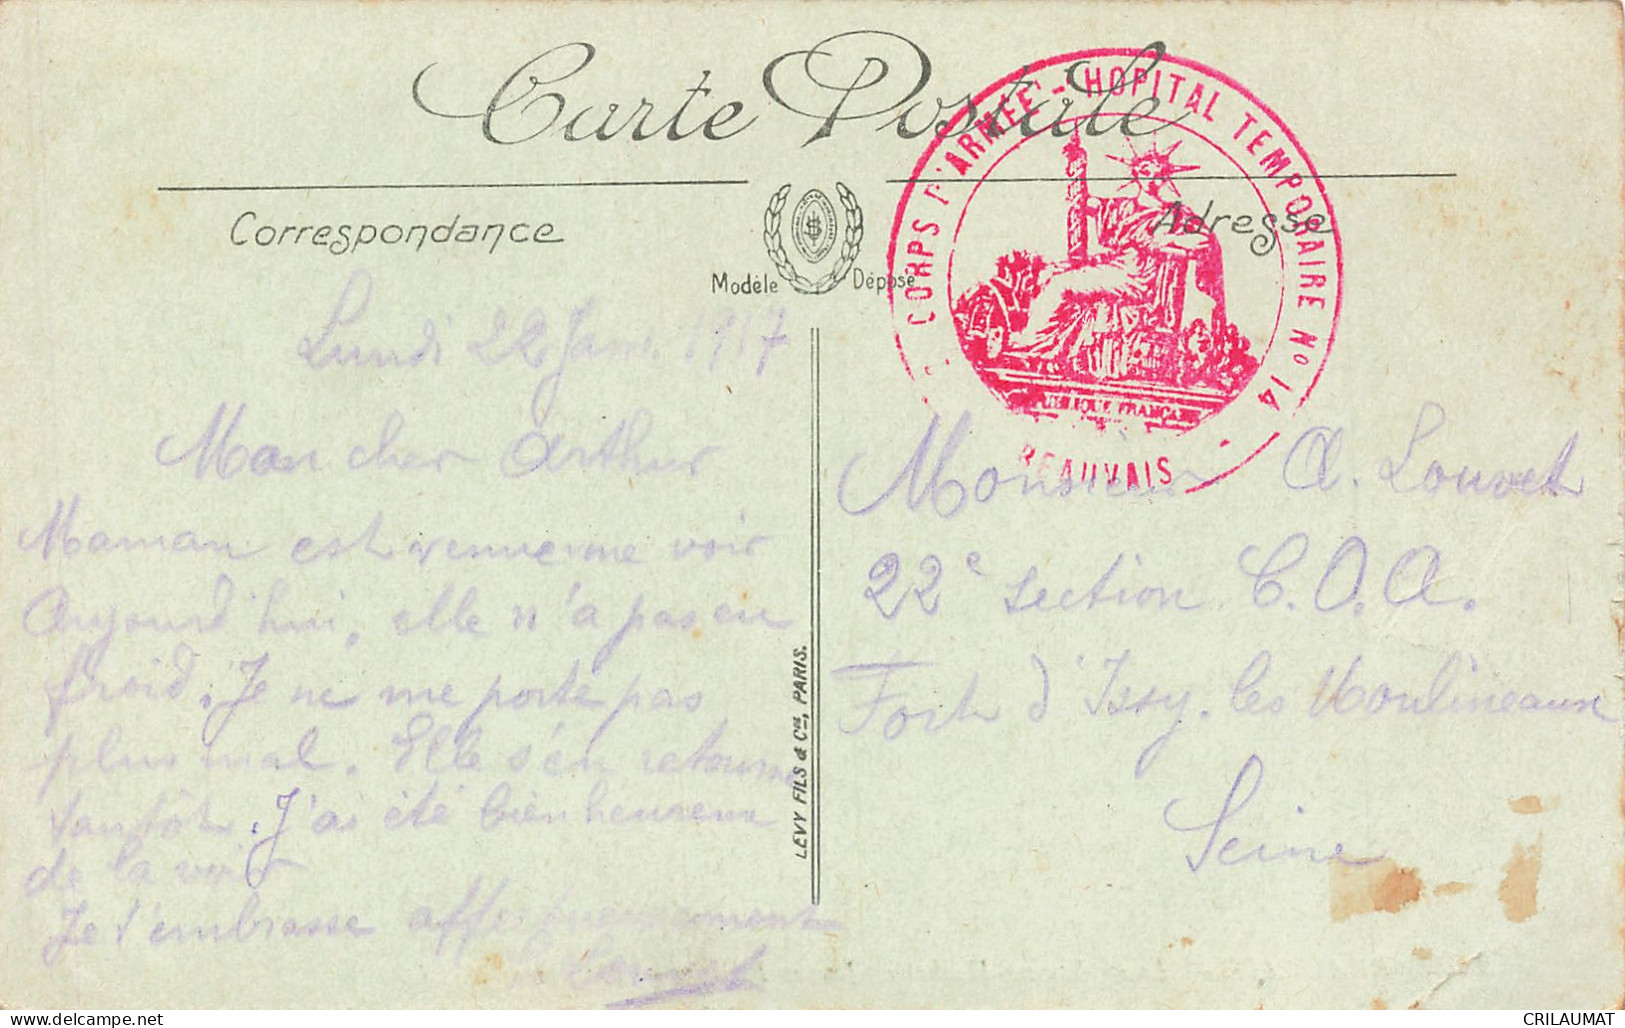 Carte Postale
CORPS D'ARMÉE - HOPITAL TEMPORAIRE No 14
BEAUVAIS
Correspondance
Adresse
Modèle Déposé
Lundi 22 Janv. 1917
Mon cher Arthur
Maman est venue me voir
Aujourd'hui, elle n'a pas eu
froid. Je ne me porte pas
plus mal. Elle s'en retourne
tantôt. J'ai été bien heureux
de la voir
Je t'embrasse affectueusement
Louvet
LEVY FILS & Cie, PARIS.
Monsieur A. Louvet
22e section C.O.A.
Fort d'Issy. les Moulineaux
Seine
delcampe.net
CRILAUMAT